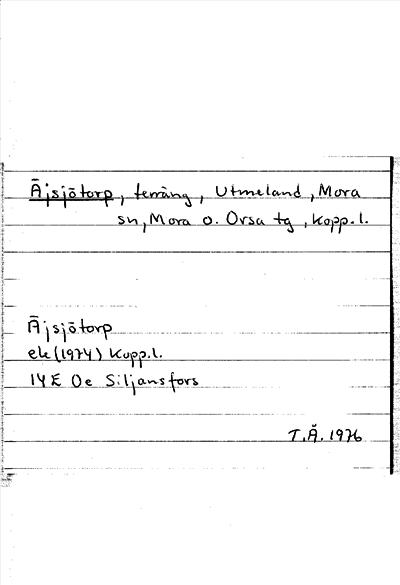 Äjsjötorp, terräng, Utmeland, Mora
sn, Mora o. Orsa tg, Kopp.l.
Äjsjötorp
ek (1974) Kopp.l.
14E Oe Siljansfors
T.Å. 1976